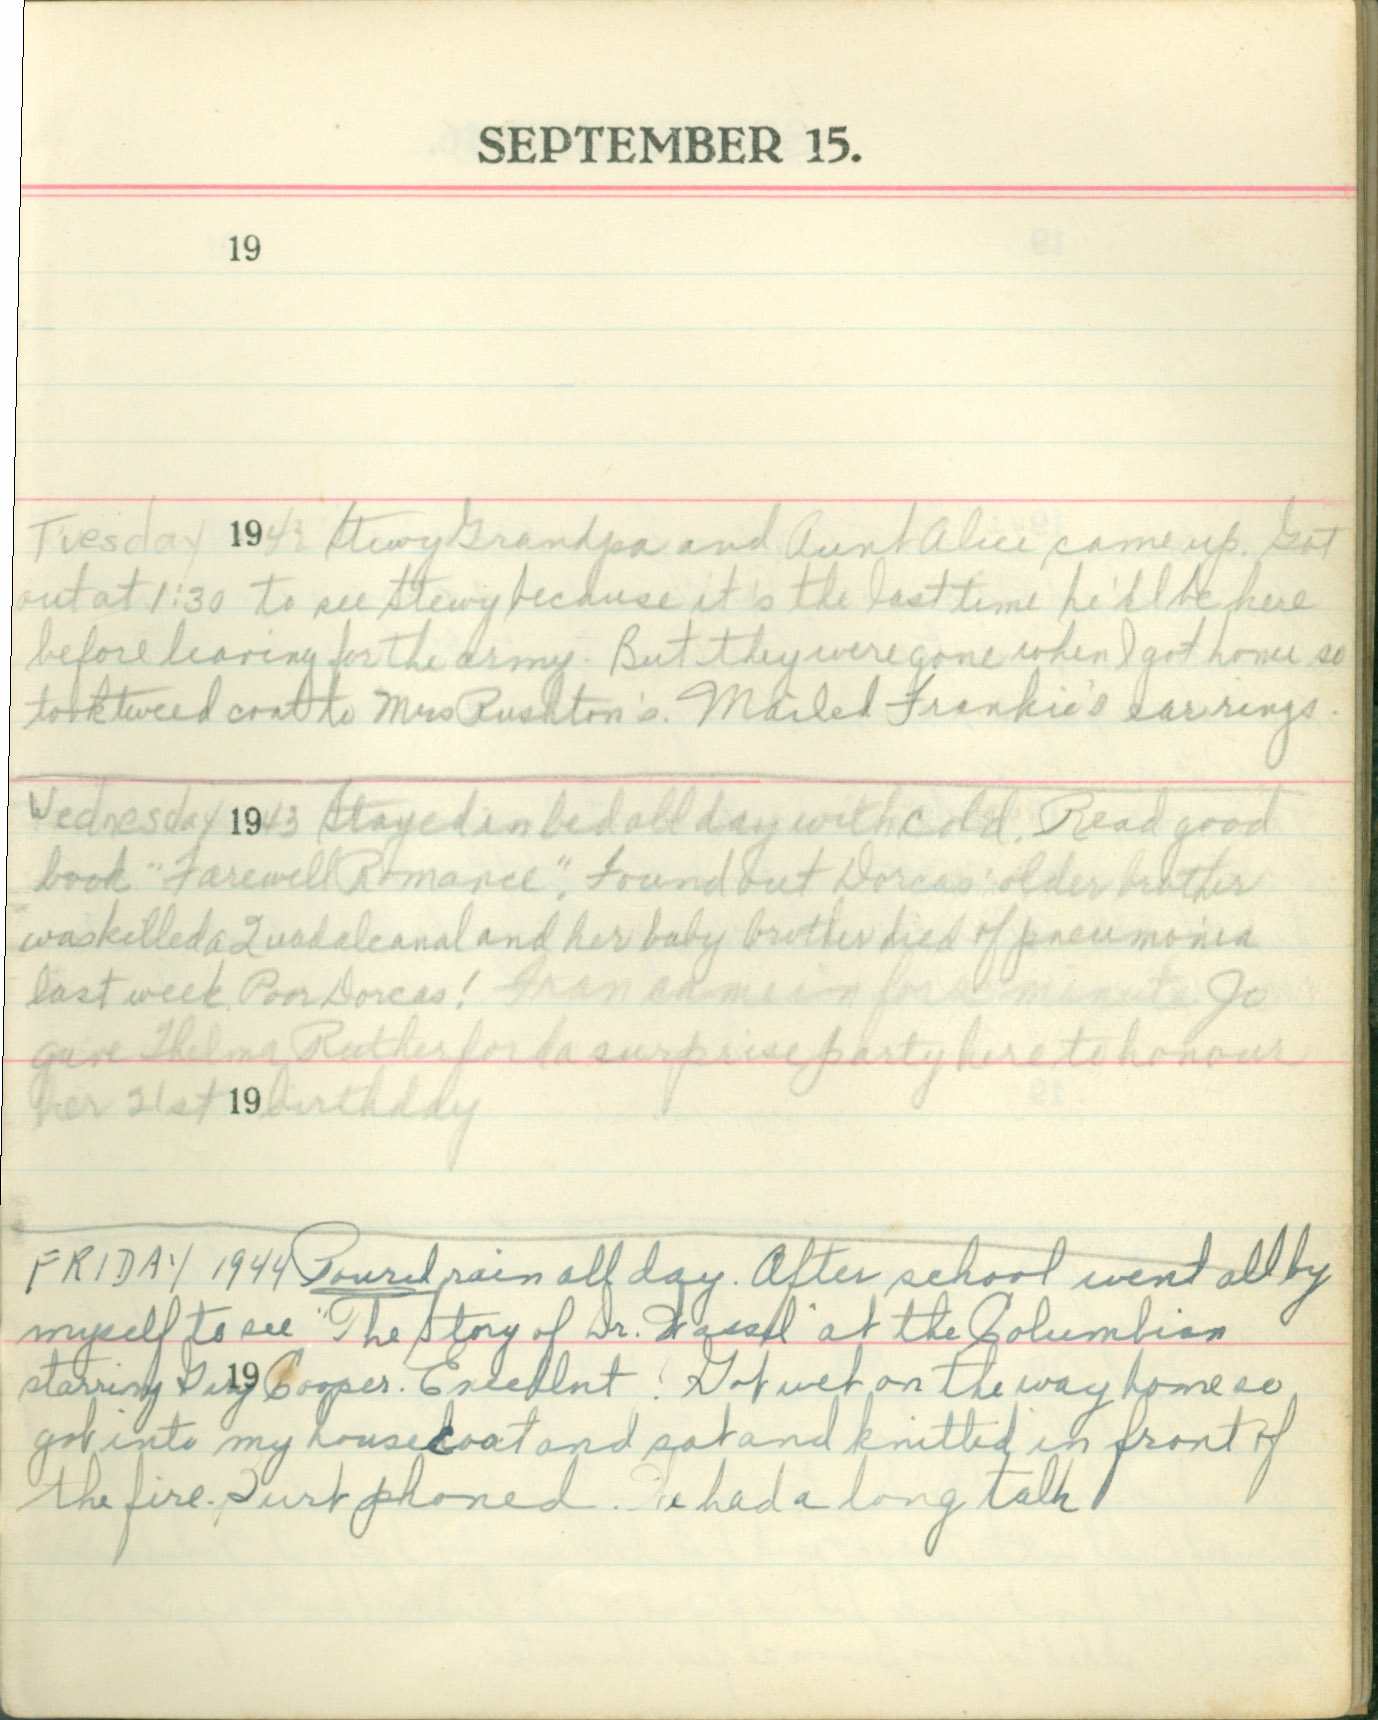 SEPTEMBER 15.
19
Tuesday 1942 Stewy Grandpa and Aunt Alice came up. Got
out at 1:30 to see Stewy because it's the last time he'd be here
before leaving for the army. But they were gone when I got home so
took tweed coat to Mrs Rushton's. Mailed Frankie's earrings.
Wednesday 1943 Stayed in bed all day with cold. Read good
book "Farewell Romance". Found out Dorcas' older brother
was killed a Quadalcanal and her baby brother died of pneumonia
last week. Poor Dorcas! Fran came in for a minute Jo
gave Thelma Rutherford a surprise party here to honour
her 21st 19 birthday
FRIDAY 1944 Poured rain all day. After school went all by
myself to see "The Story of Dr. Wassel" at the Columbian
starring Gary 19 Cooper. Excellent! Got wet on the way home so
got into my housecoat and sat and knitted in front of
the fire. Burt phoned. We had a long talk